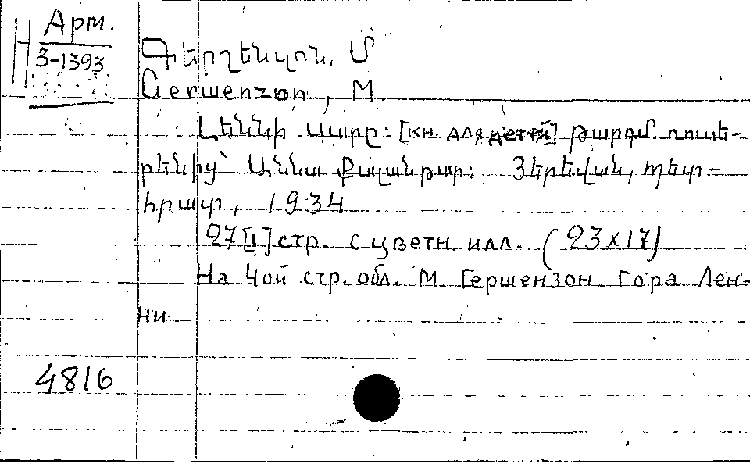 Арм.
З-1393
Գերշենզոն, Մ
Gerшenzon, M
Լեննի սարը: [кн. для детей] թարգմ. ռուսե-
րենից՝ Աննա Քալանթար: Յերեվան, պետ-
հրատ, 1934
27[1] стр. с цветн. илл. (23х17)
На 4ой стр. обл. М. Гершензон Гора Лен-
ни
4816